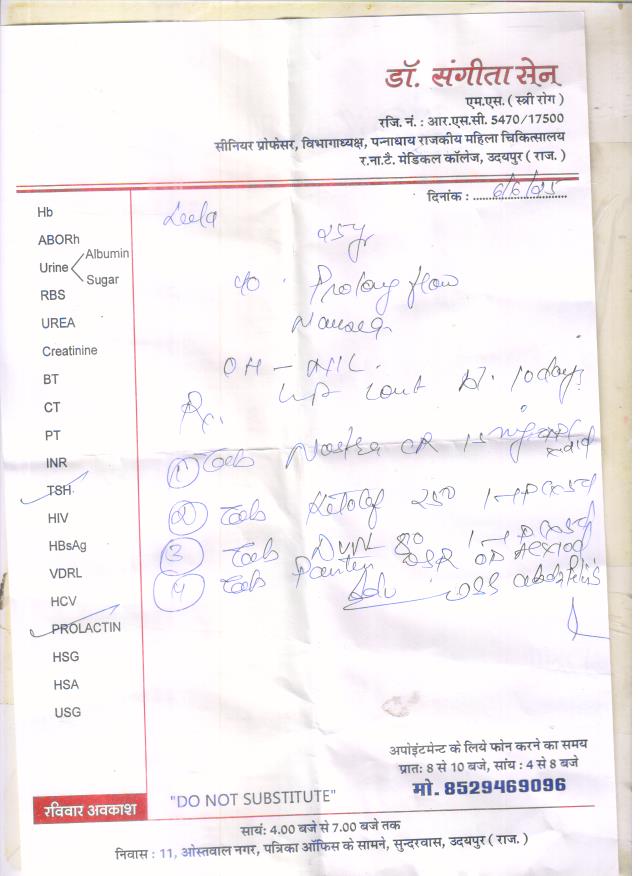 डॉ. संगीता सेन
एम.एस. ( स्त्री रोग )
रजि. नं. : आर.एस.सी. 5470/17500
सीनियर प्रोफेसर, विभागाध्यक्ष, पन्नाधाय राजकीय महिला चिकित्सालय
र.ना.टै. मेडिकल कॉलेज, उदयपुर ( राज. )
दिनांक : 6/6/25
Hb
ABORh
Urine Albumin
Sugar
RBS
UREA
Creatinine
BT
CT
PT
INR
TSH
HIV
HBsAg
VDRL
HCV
PROLACTIN
HSG
HSA
USG
Leela 25yr
c/o Prolong flow
Nausea
OH - NIL
10 days
Rx.
1 Tab CR 15 mg
2 Tab 250
3 Tab 80
4 Tab DSR OD
Adv
अपोइंटमेन्ट के लिये फोन करने का समय
प्रात: 8 से 10 बजे, सांय : 4 से 8 बजे
मो. 8529469096
"DO NOT SUBSTITUTE"
रविवार अवकाश
सायं: 4.00 बजे से 7.00 बजे तक
निवास : 11, ओस्तवाल नगर, पत्रिका ऑफिस के सामने, सुन्दरवास, उदयपुर ( राज. )